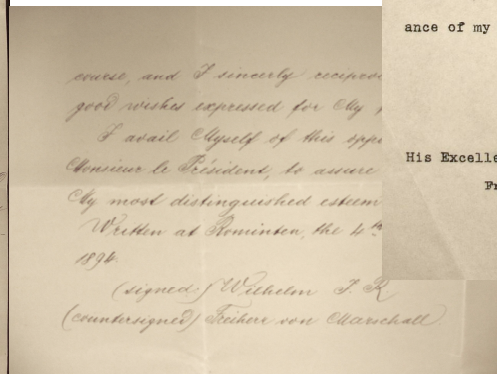 course, and I sincerly recipro
good wishes expressed for My
I avail Myself of this opp
Monsieur le Président, to assure
My most distinguished esteem
Written at Rominten, the 4th
1894.
(signed:) Wilhelm I. R
(countersigned) Freiherr von Marschall
ance of my
His Excelle
Fr